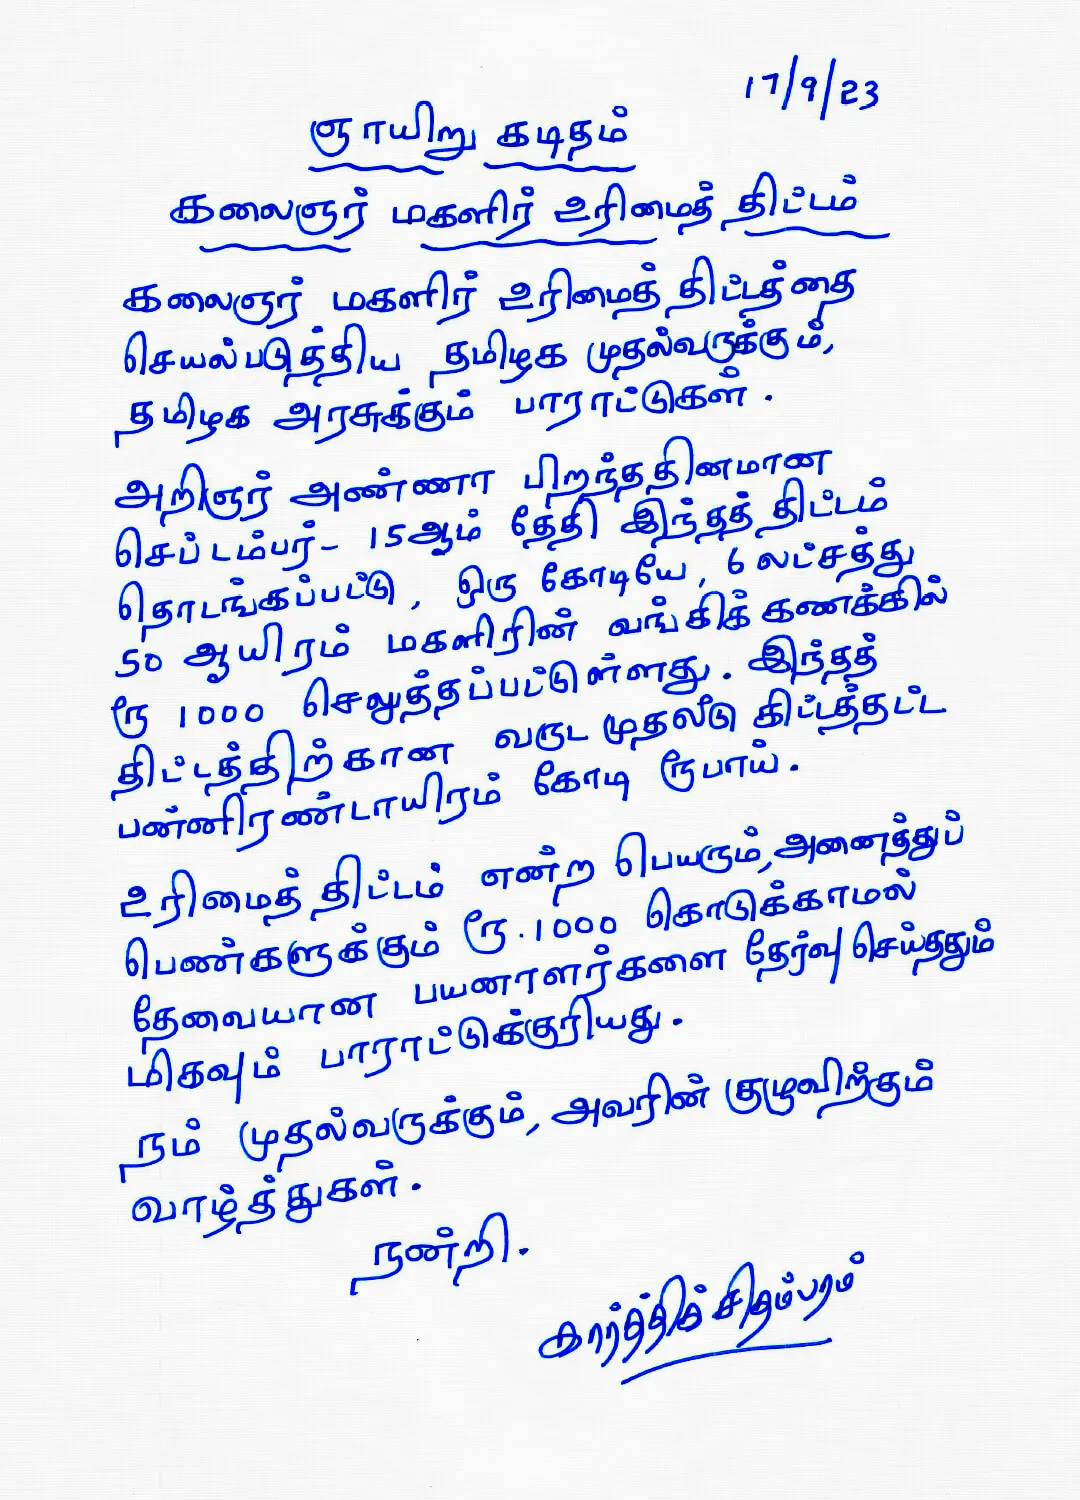 17/9/23
ஞாயிறு கடிதம்
கலைஞர் மகளிர் உரிமைத் திட்டம்
கலைஞர் மகளிர் உரிமைத் திட்டத்தை
செயல்படுத்திய தமிழக முதல்வருக்கும்,
தமிழக அரசுக்கும் பாராட்டுகள்.
அறிஞர் அண்ணா பிறந்ததினமான
செப்டம்பர்- 15ஆம் தேதி இந்தத் திட்டம்
தொடங்கப்பட்டு, ஒரு கோடியே, 6 லட்சத்து
50 ஆயிரம் மகளிரின் வங்கிக் கணக்கில்
ரூ 1000 செலுத்தப்பட்டுள்ளது. இந்தத்
திட்டத்திற்கான வருட முதலீடு கிட்டத்தட்ட
பன்னிரண்டாயிரம் கோடி ரூபாய்.
உரிமைத் திட்டம் என்ற பெயரும், அனைத்துப்
பெண்களுக்கும் ரூ.1000 கொடுக்காமல்
தேவையான பயனாளர்களை தேர்வு செய்ததும்
மிகவும் பாராட்டுக்குரியது.
நம் முதல்வருக்கும், அவரின் குழுவிற்கும்
வாழ்த்துகள்.
நன்றி.
கார்த்திக் சிதம்பரம்